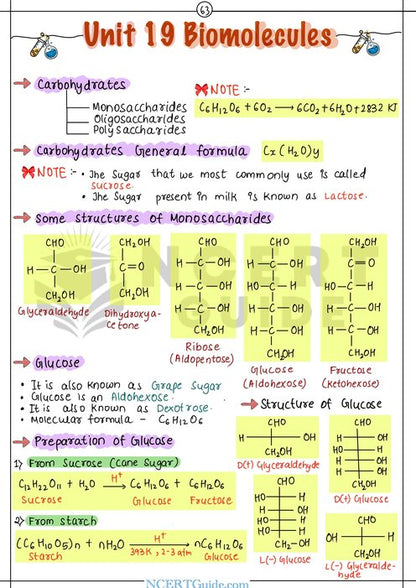 63
Unit 19 Biomolecules
Carbohydrates
Monosaccharides
Oligosaccharides
Polysaccharides
NOTE :-
C6H12O6 + 6O2 → 6CO2 + 6H2O + 2832 KJ
Carbohydrates General formula Cx(H2O)y
NOTE :- • The Sugar that we most commonly use is called
sucrose.
• The Sugar present in milk is known as Lactose.
Some structures of Monosaccharides
NCERT
GUIDE
CHO
H-C-OH
CH2OH
Glyceraldehyde
CH2OH
C=O
CH2OH
Dihydroxya-
cetone
CHO
H-C-OH
H-C-OH
H-C-OH
CH2OH
Ribose
(Aldopentose)
CHO
H-C-OH
HO-C-H
H-C-OH
H-C-OH
CH2OH
Glucose
(Aldohexose)
CH2OH
C=O
HO-C-H
H-C-OH
H-C-OH
CH2OH
Fructose
(Ketohexose)
Glucose
• It is also known as Grape Sugar
• Glucose is an Aldohexose.
• It is also known as Dextrose.
• Molecular formula - C6H12O6
Preparation of Glucose
1) From Sucrose (cane Sugar)
C12H22O11 + H2O H+ → C6H12O6 + C6H12O6
Sucrose Glucose Fructose
2) From starch
(C6H10O5)n + nH2O H+ → nC6H12O6
393K, 2-3 atm
Starch Glucose
Structure of Glucose
CHO
H OH
CH2OH
D(+) Glyceraldehyde
CHO
H OH
HO H
H OH
H OH
CH2OH
D(+) Glucose
CHO
HO H
H OH
HO H
HO H
CH2-OH
L(-) Glucose
CHO
OH H
CH2OH
L(-) Glyceralde-
hyde
NCERTGuide.com